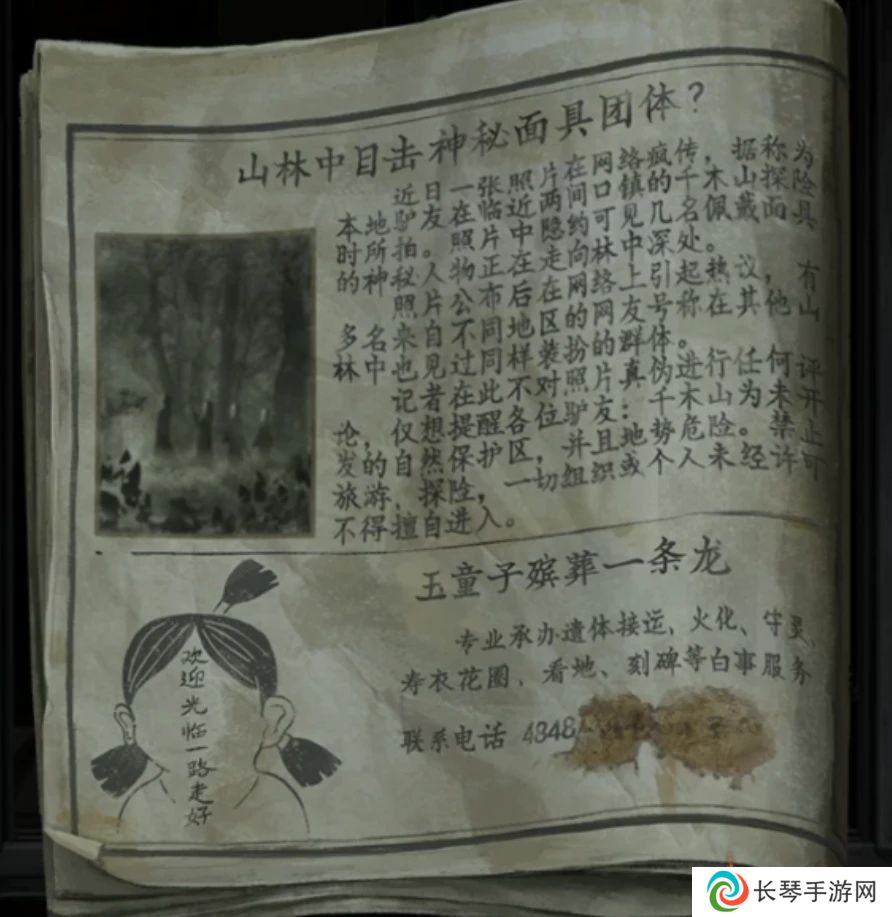 山林中目击神秘面具团体？
近日一张照片在网络疯传，据称为
本地驴友在临近两间口镇的千木山探险
时所拍。照片中隐约可见几名佩戴面具
的神秘人物正在走向林中深处。
照片公布后在网络上引起热议，有
多名来自不同地区的网友号称在其他山
林中也见过同样装扮的群体。
记者在此不对照片真伪进行任何评
论，仅想提醒各位驴友：千木山为未开
发的自然保护区，并且地势危险。禁止
旅游、探险，一切组织或个人未经许可
不得擅自进入。
玉童子殡葬一条龙
专业承办遗体接运、火化、守灵、
寿衣花圈、看地、刻碑等白事服务
联系电话 4848
欢迎光临一路走好
长琴手游网